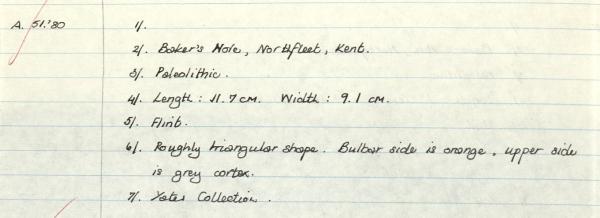 A. 51.'80 1/.
2/. Baker's Hole, Northfleet, Kent.
3/. Paleolithic.
4/. Length : 11.7 cm. Width : 9.1 cm.
5/. Flint.
6/. Roughly triangular shape. Bulbar side is orange, upper side
is grey cortex.
7/. Yates Collection.